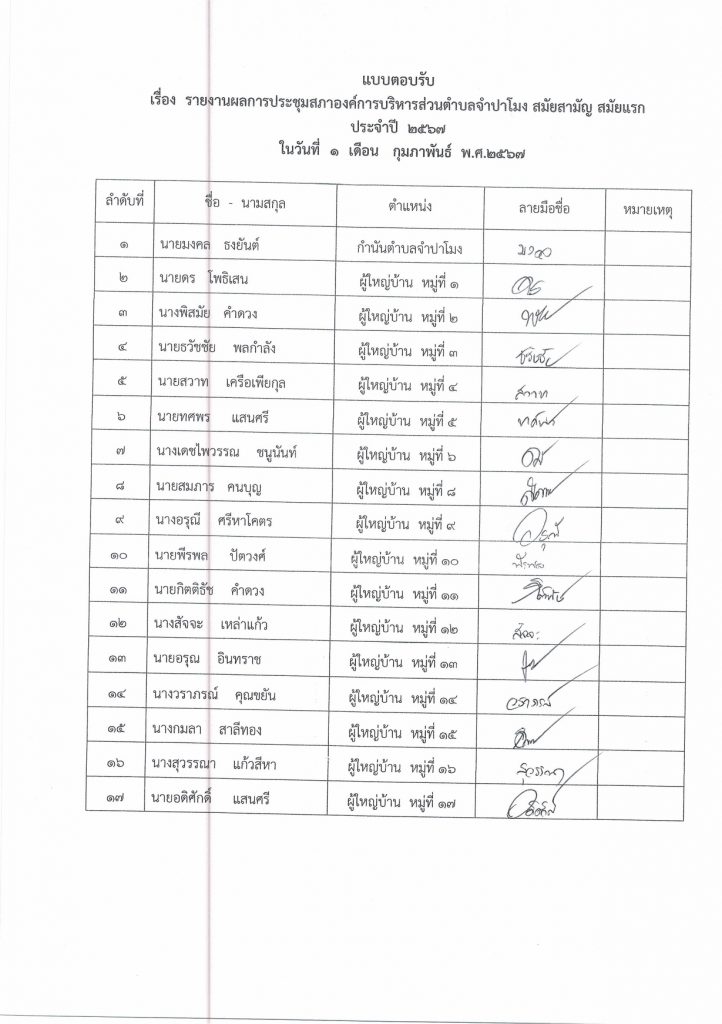 แบบตอบรับ
เรื่อง รายงานผลการประชุมสภาองค์การบริหารส่วนตำบลจำปาโมง สมัยสามัญ สมัยแรก
ประจำปี ๒๕๖๗
ในวันที่ ๑ เดือน กุมภาพันธ์ พ.ศ.๒๕๖๗
ลำดับที่ ชื่อ - นามสกุล ตำแหน่ง ลายมือชื่อ หมายเหตุ
๑ นายมงคล ธงยันต์ กำนันตำบลจำปาโมง มงคล
๒ นายดร โพธิเสน ผู้ใหญ่บ้าน หมู่ที่ ๑
๓ นางพิสมัย คำดวง ผู้ใหญ่บ้าน หมู่ที่ ๒
๔ นายธวัชชัย พลกำลัง ผู้ใหญ่บ้าน หมู่ที่ ๓
๕ นายสวาท เครือเพียกุล ผู้ใหญ่บ้าน หมู่ที่ ๔ สวาท
๖ นายทศพร แสนศรี ผู้ใหญ่บ้าน หมู่ที่ ๕
๗ นางเดชไพวรรณ ชนูนันท์ ผู้ใหญ่บ้าน หมู่ที่ ๖
๘ นายสมภาร คนบุญ ผู้ใหญ่บ้าน หมู่ที่ ๘
๙ นางอรุณี ศรีหาโคตร ผู้ใหญ่บ้าน หมู่ที่ ๙ อรุณี
๑๐ นายพีรพล ปัตวงศ์ ผู้ใหญ่บ้าน หมู่ที่ ๑๐ พีรพล
๑๑ นายกิตติธัช คำดวง ผู้ใหญ่บ้าน หมู่ที่ ๑๑
๑๒ นางสัจจะ เหล่าแก้ว ผู้ใหญ่บ้าน หมู่ที่ ๑๒ สัจจะ
๑๓ นายอรุณ อินทราช ผู้ใหญ่บ้าน หมู่ที่ ๑๓
๑๔ นางวราภรณ์ คุณขยัน ผู้ใหญ่บ้าน หมู่ที่ ๑๔ วราภรณ์
๑๕ นางกมลา สาลีทอง ผู้ใหญ่บ้าน หมู่ที่ ๑๕
๑๖ นางสุวรรณา แก้วสีหา ผู้ใหญ่บ้าน หมู่ที่ ๑๖ สุวรรณา
๑๗ นายอดิศักดิ์ แสนศรี ผู้ใหญ่บ้าน หมู่ที่ ๑๗